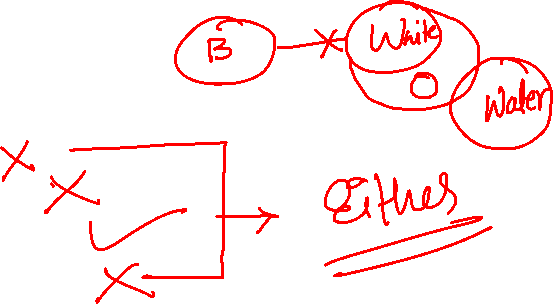 B White
O
Water
Either